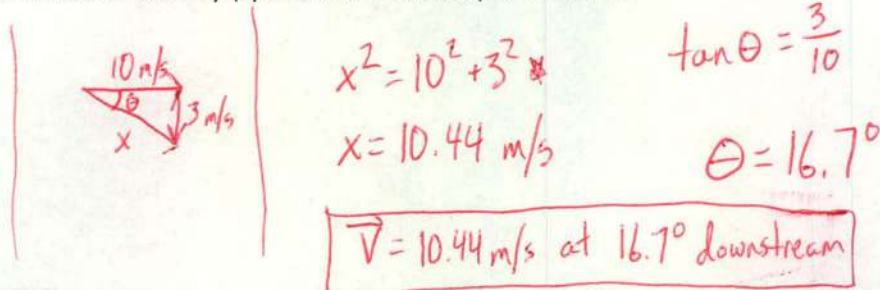 10 m/s
θ
3 m/s
x
x² = 10² + 3²
x = 10.44 m/s
tan θ = 3/10
θ = 16.7°
V⃗ = 10.44 m/s at 16.7° downstream